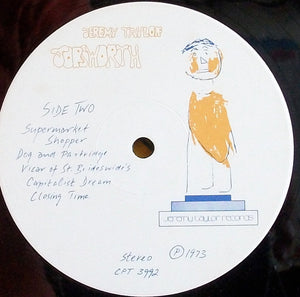 JEREMY TAYLOR
JOBSWORTH
SIDE TWO
Supermarket
Shopper
Dog and Partridge
Vicar of St. Brideswide's
Capitalist Dream
Closing Time
jeremy taylor records
Stereo Ⓟ 1973
CPT 3992